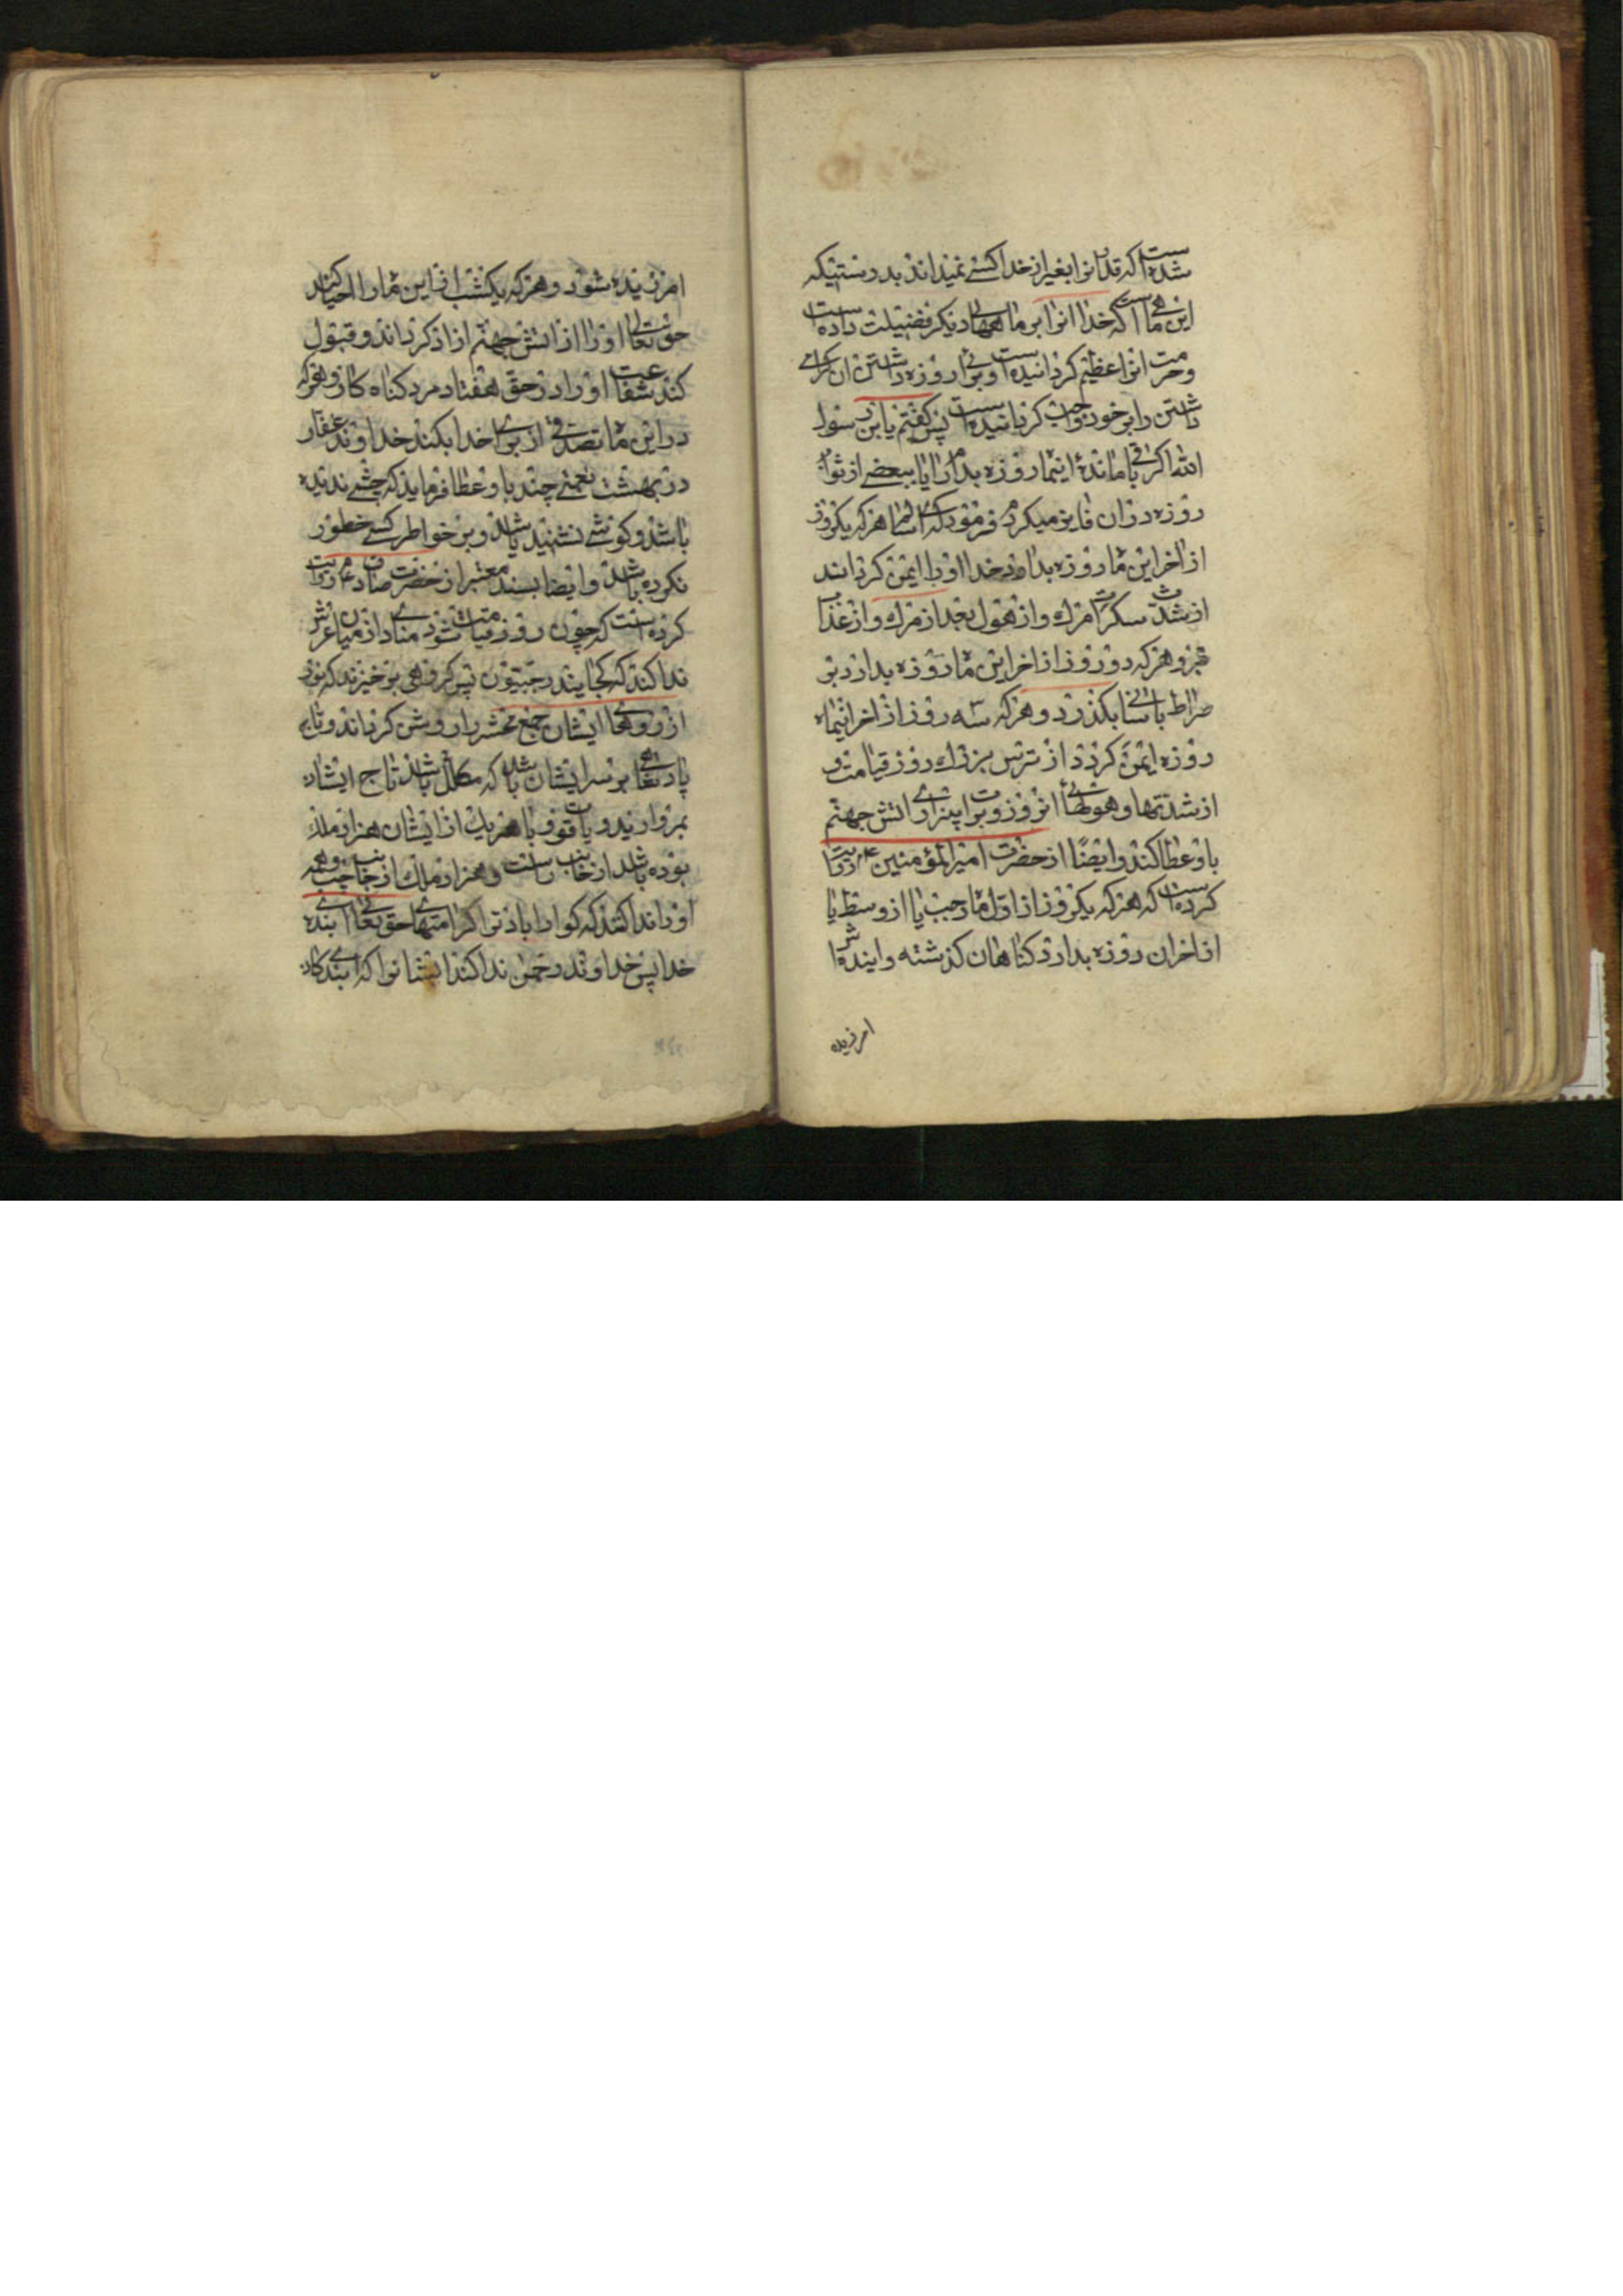 شده است که قدر آنرا بغیر از خدا کسی نمیداند بدرستیکه
این ماهی است که خدا آنرا بر ماههای دیگر فضیلت داده است
و حرمت آنرا عظیم گردانیده است و برای روزه داشتن آن گرامی
داشتن را بر خود واجب گردانیده است پس گفتم یابن رسول
الله اگر در باقیمانده اینماه روزه بدارم آیا ببعضی از ثواب
روزه داران فایز میگردم فرمود که ای سالم هر که یکروز
از آخر این ماه روزه بدارد خدا او را ایمن گرداند
از شدت سکرات مرک و از هول بعد از مرک و از عذاب
قبر و هر که دو روز از آخر این ماه روزه بدارد بر
صراط باسانی بگذرد و هر که سه روز از آخر اینماه
روزه ایمن گردد از ترس بزرک روز قیامت و
از شدتها و هولهای آنروز و برات بیزاری از آتش جهنم
باو عطا کند و ایضاً از حضرت امیر المؤمنین ع روایت
کرده است که هر که یکروز از اول ماه رجب یا از وسط یا
از آخر آن روزه بدارد گناهان گذشته و آینده اش
امرزیده
امرزیده شود و هر که یکشب از این ماه را احیا کند
حق تعالی او را از آتش جهنم آزاد گرداند و قبول
کند شفاعت او را در حق هفتاد مرد گناه کار و هر که
در این ماه تصدقی از برای خدا بکند خداوند غفار
در بهشت نعمتی چند باو عطا فرماید که چشمی ندیده
باشد و گوشی نشنیده باشد و بر خواطر کسی خطور
نکرده باشد و ایضا بسند معتبر از حضرت صادق ع روایت
کرده است که چون روز قیامت شود منادی از میان عرش
ندا کند که کجایند رجبیّون پس گروهی بر خیزند که نور
از رویهای ایشان جمع محشر را روشن گرداند و تاج
پادشاهی بر سر ایشان باشد که مکلل باشد تاج ایشان
بمروارید و یاقوت و با هر یک از ایشان هزار ملک
بوده باشد از جانب راست و هزار ملک از جانب چپ و همه
او را ندا کنند که گوارا باد ترا کرامتهای حق تعالی ای بنده
خدا پس خداوند رحمن ندا کند ایشانرا که ای بندگان